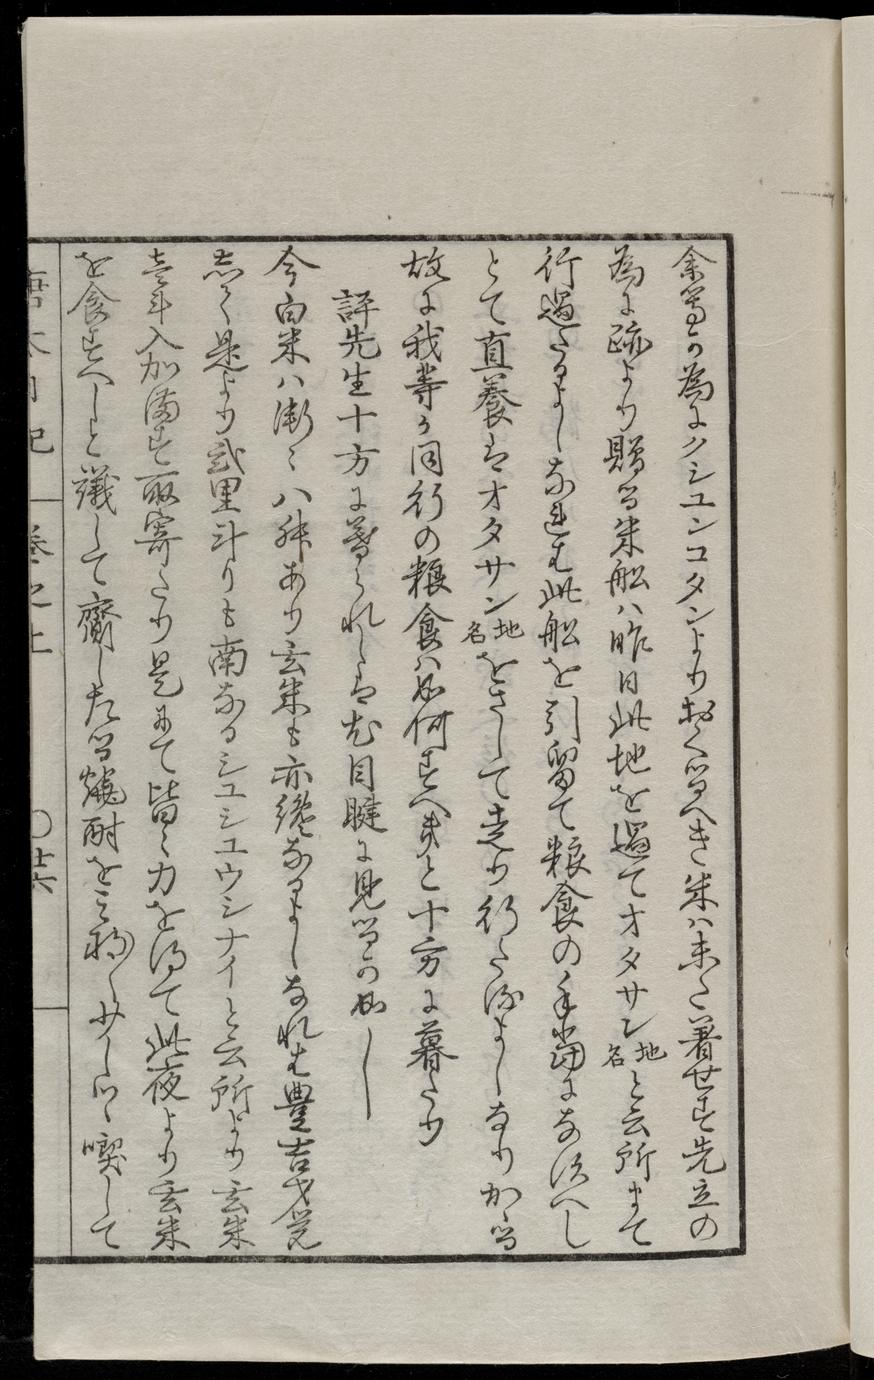 余等か為にクシユンコタンよりおくるへき米ハ未た着せす先立の
為に跡より贈る米船ハ昨日此地を過てオタサン地名と云所まて
行過たるよしなれは此船を引留て粮食の手当になすへし
とて直養はオタサン地名をさして走り行たるよしなりかゝる
故に我等か同行の粮食ハ如何すへきと十方に暮たり
評先生十方に暮られしは尤目睫に見るか如し
今白米ハ漸々八升あり玄米も亦纔なるよしなれは豊吉才覚
して是より弐里斗りも南なるシユシユウシナイと云所より玄米
壱斗入加満す取寄たり是にて皆々力を得て此夜より玄米
を食すへしと議して齎したる焼酎を三杓くみしつゝ喫して
唐太日記 巻之上 〇廿六